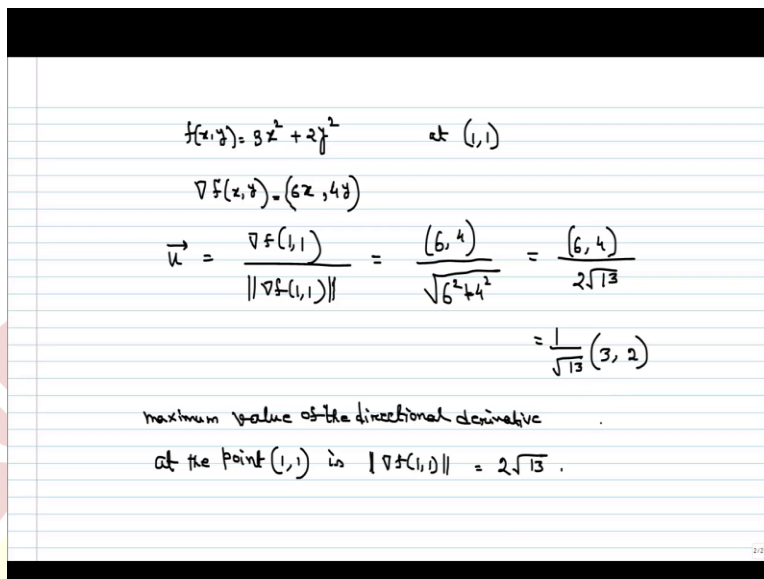 f(x,y) = 3x² + 2y² at (1,1)
∇f(x,y) = (6x, 4y)
u⃗ = ∇f(1,1) / ||∇f(1,1)|| = (6,4) / √(6²+4²) = (6,4) / 2√13
= 1/√13 (3, 2)
maximum value of the directional derivative
at the point (1,1) is ||∇f(1,1)|| = 2√13.
2/2